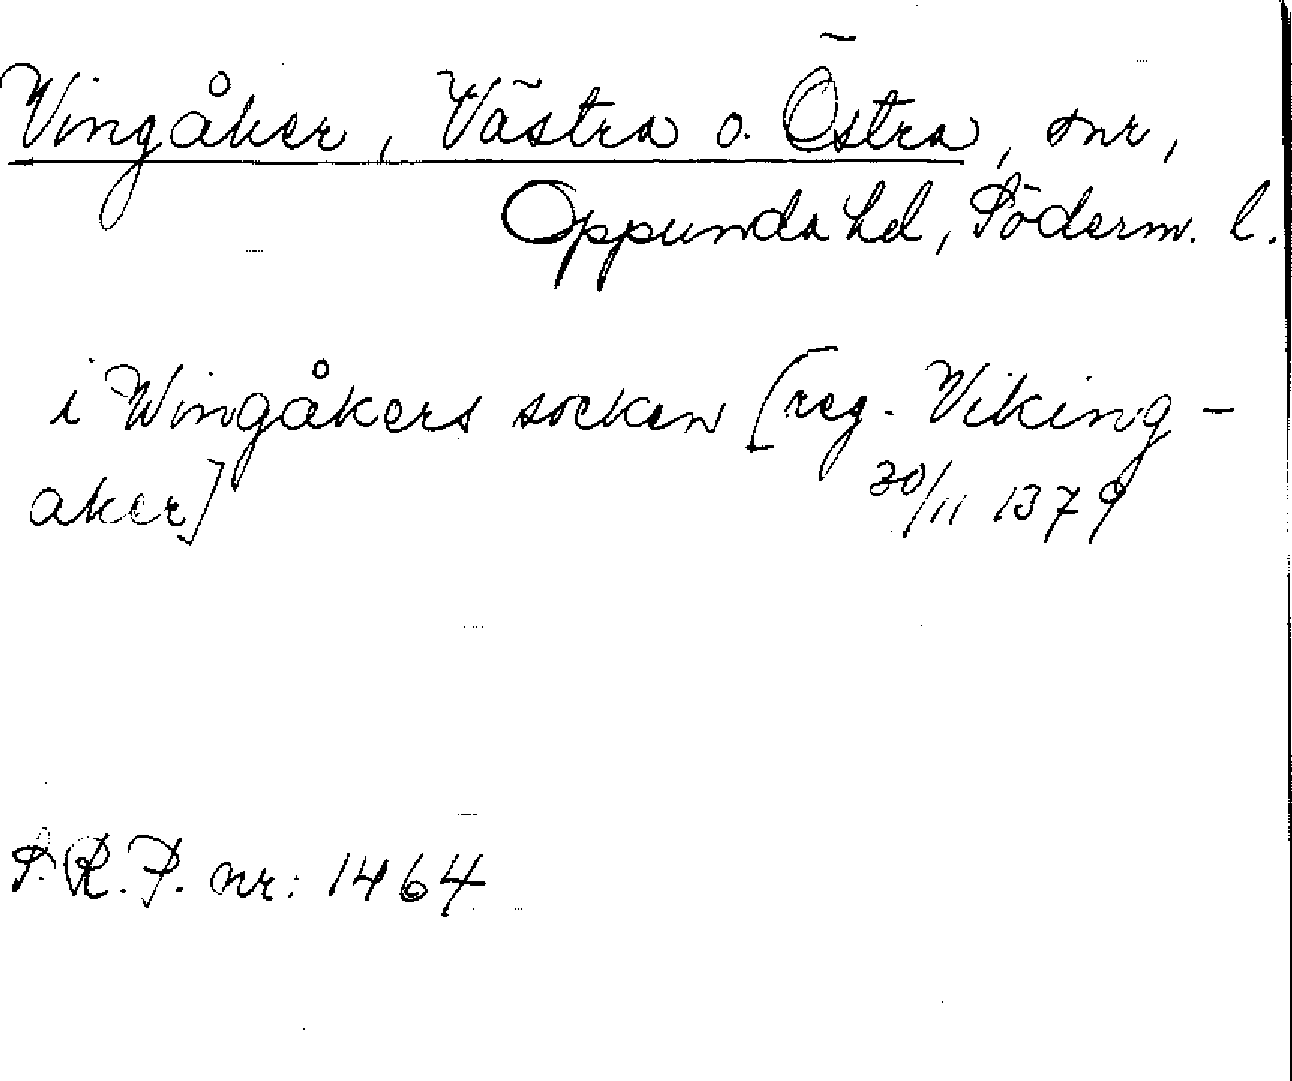 Vingåker, Västra o. Östra, snr,
Oppunda hd, Söderm. l.
i Wingåkers socken [reg. Viking-
aker]
30/11 1379
S.R.P. nr: 1464